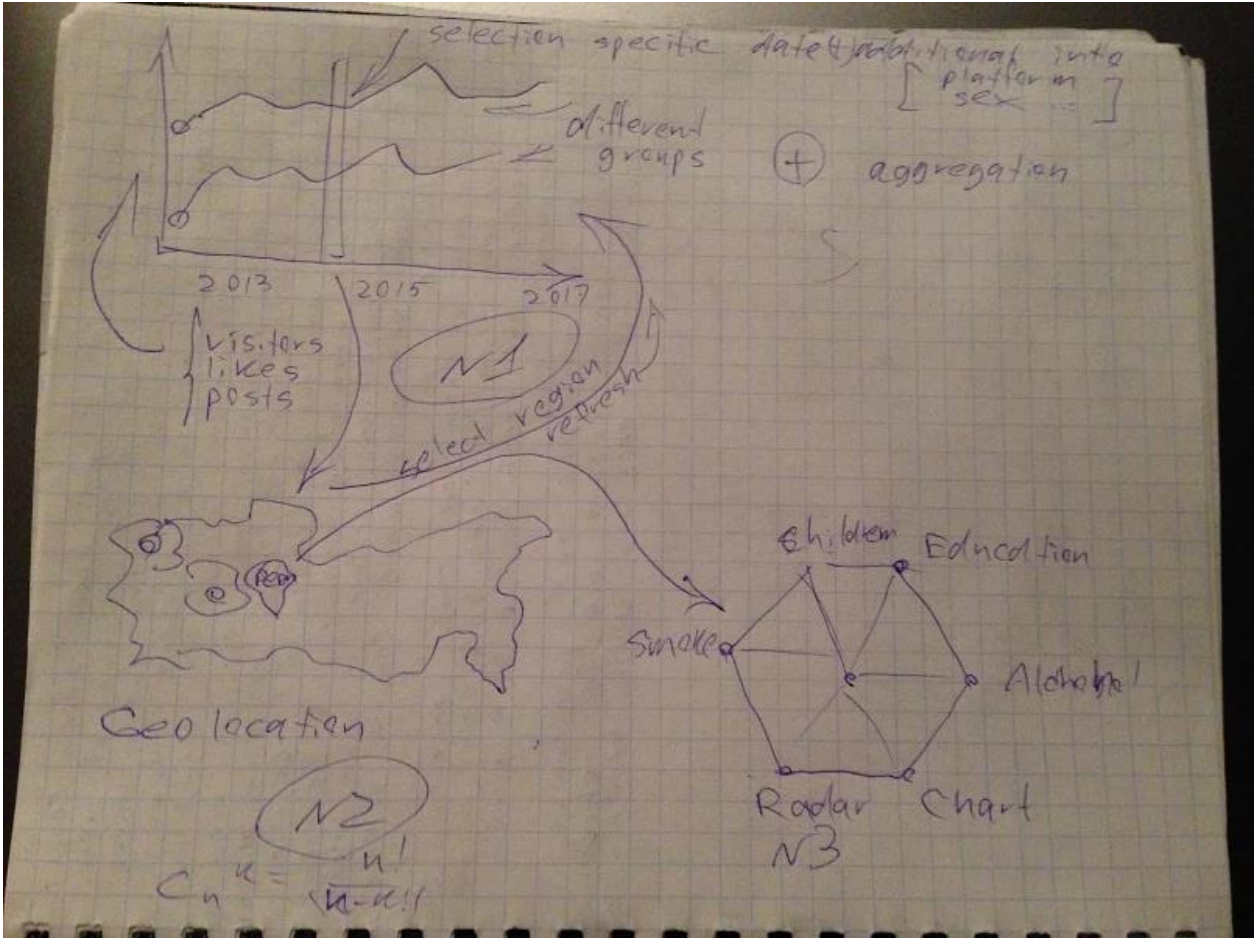 selection specific date (+) additional info
[ platform
sex ... ]
different
groups
+ aggregation
2013 2015 2017
visitors
likes
posts
N1
select region
refresh
Geo location
N2
Children
Education
Smoke
Radar Chart
N3
C_n^k = n! / (n-k)!